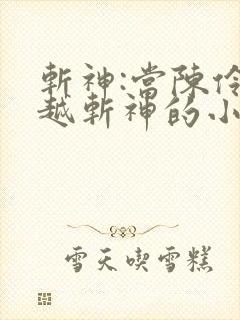 斬神:當陳伶
越斬神的小
雪天喫雪糕